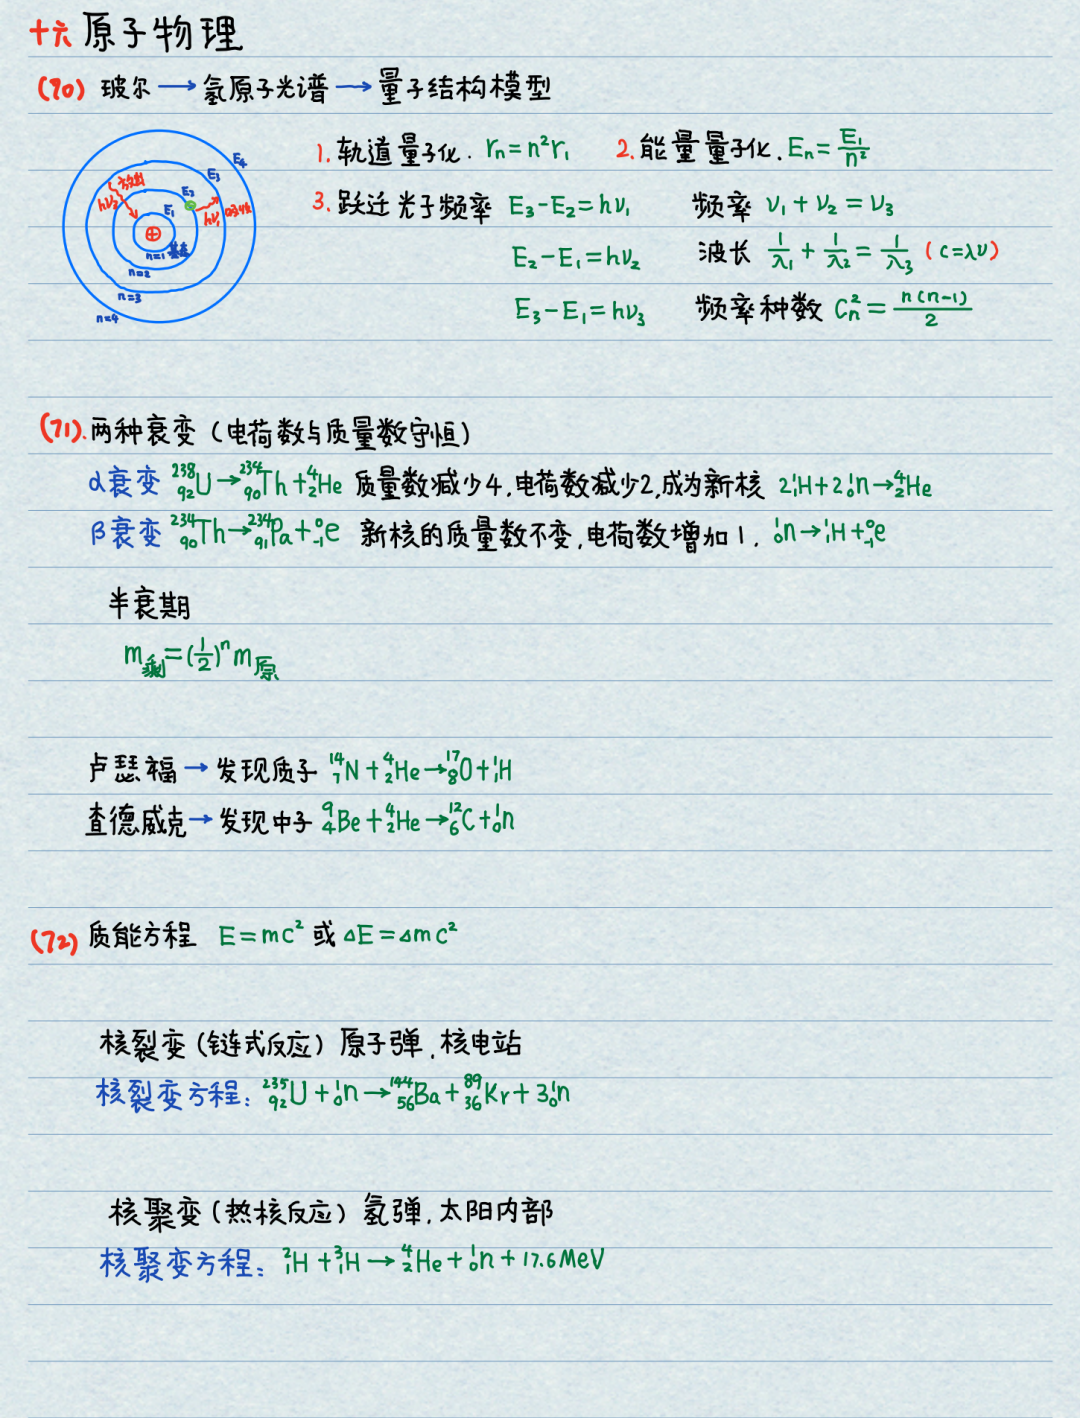 十六 原子物理
(70) 玻尔 → 氢原子光谱 → 量子结构模型
1. 轨道量子化. rₙ=n²r₁ 2. 能量量子化. Eₙ=E₁/n²
3. 跃迁光子频率 E₃-E₂=hν₁ 频率 ν₁+ν₂=ν₃
E₂-E₁=hν₂ 波长 1/λ₁+1/λ₂=1/λ₃ (c=λν)
E₃-E₁=hν₃ 频率种数 Cₙ²=n(n-1)/2
E₄
E₃
E₂
E₁
放出
hν₂
hν₁ 吸收
n=1 基态
n=2
n=3
n=4
(71). 两种衰变 (电荷数与质量数守恒)
α衰变 ²³⁸₉₂U→²³⁴₉₀Th+⁴₂He 质量数减少4,电荷数减少2,成为新核 2¹₁H+2¹₀n→⁴₂He
β衰变 ²³⁴₉₀Th→²³⁴₉₁Pa+⁰₋₁e 新核的质量数不变,电荷数增加1. ¹₀n→¹₁H+⁰₋₁e
半衰期
m剩=(1/2)ⁿm原
卢瑟福→发现质子 ¹⁴₇N+⁴₂He→¹⁷₈O+¹₁H
查德威克→发现中子 ⁹₄Be+⁴₂He→¹²₆C+¹₀n
(72) 质能方程 E=mc² 或 ΔE=Δmc²
核裂变 (链式反应) 原子弹,核电站
核裂变方程: ²³⁵₉₂U+¹₀n→¹⁴⁴₅₆Ba+⁸⁹₃₆Kr+3¹₀n
核聚变 (热核反应) 氢弹,太阳内部
核聚变方程: ²₁H+³₁H→⁴₂He+¹₀n+17.6MeV